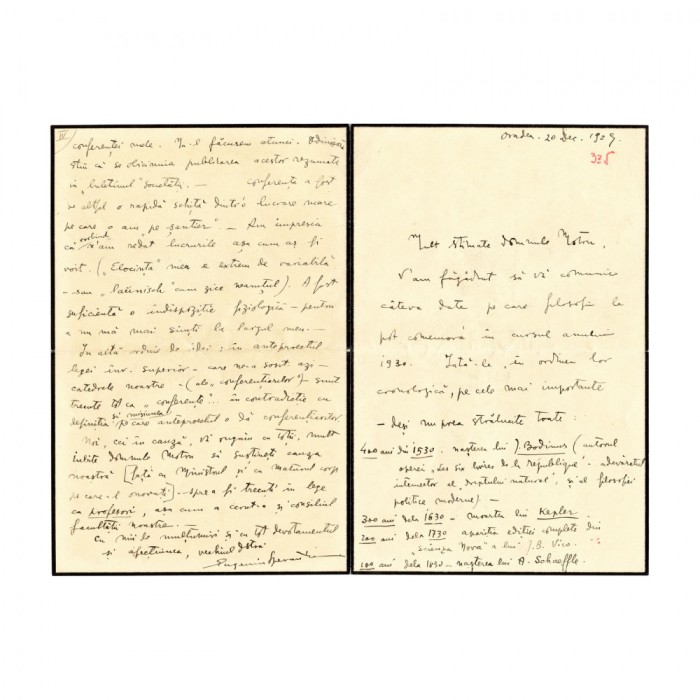 Oradea. 20 Dec. 1929.
335
Mult stimate domnule Motru,
V'am făgăduit să vă comunic
câteva date pe care filosofii le
pot comemora în cursul anului
1930. Iată-le, în ordinea lor
cronologică, pe cele mai importante
— deși nu prea strălucite toate:
400 ani din 1530. nașterea lui J. Bodinus (autorul
operei „Les six livres de la république" - adevăratul
întemeetor al „dreptului natural", și al filosofiei
politice moderne) —
300 ani dela 1630 — moartea lui Kepler.
200 ani dela 1730 apariția ediției complete din
„Scienza Nova" a lui J.B. Vico.
100 ani dela 1830 — nașterea lui A. Schaeffle.
IV
conferenței mele. Nu-l făcusem atunci.
știu că se obicinuia publicarea acestor rezumate
în „buletinul" Societății. — conferența a fost
de altfel o rapidă schiță dintr'o lucrare mare
pe care o am „pe șantier". — Am impresia
că n'am redat lucrurile așa cum aș fi
vorit. („Elocința" mea e extrem de variabilă
— sau „laünisch" cum zice neamțul). A fost
suficientă o indispoziție fiziologică — pentru
a nu mă mai simți la largul meu. —
În altă ordine de idei: în anteproectul
legei înv. superior — care ne-a sosit azi —
catedrele noastre — (ale „conferențiarilor") — sunt
trecute tot ca „conferențe"... în contradicție cu
definiția și misiunea pe care anteproectul o dă conferențiarilor.
Noi, cei în cauză, vă rugăm cu toții, mult
iubite domnule Motru să susțineți cauza
noastră [față de Ministrul și de maturul corp
pe care-l onorați] — spre a fi trecuți în lege
ca profesori, așa cum a cerut-o și consiliul
facultății noastre —
Cu mii de mulțumiri și cu tot devotamentul
și afecțiunea, vechiul Dstră
Eugeniu Sperantia